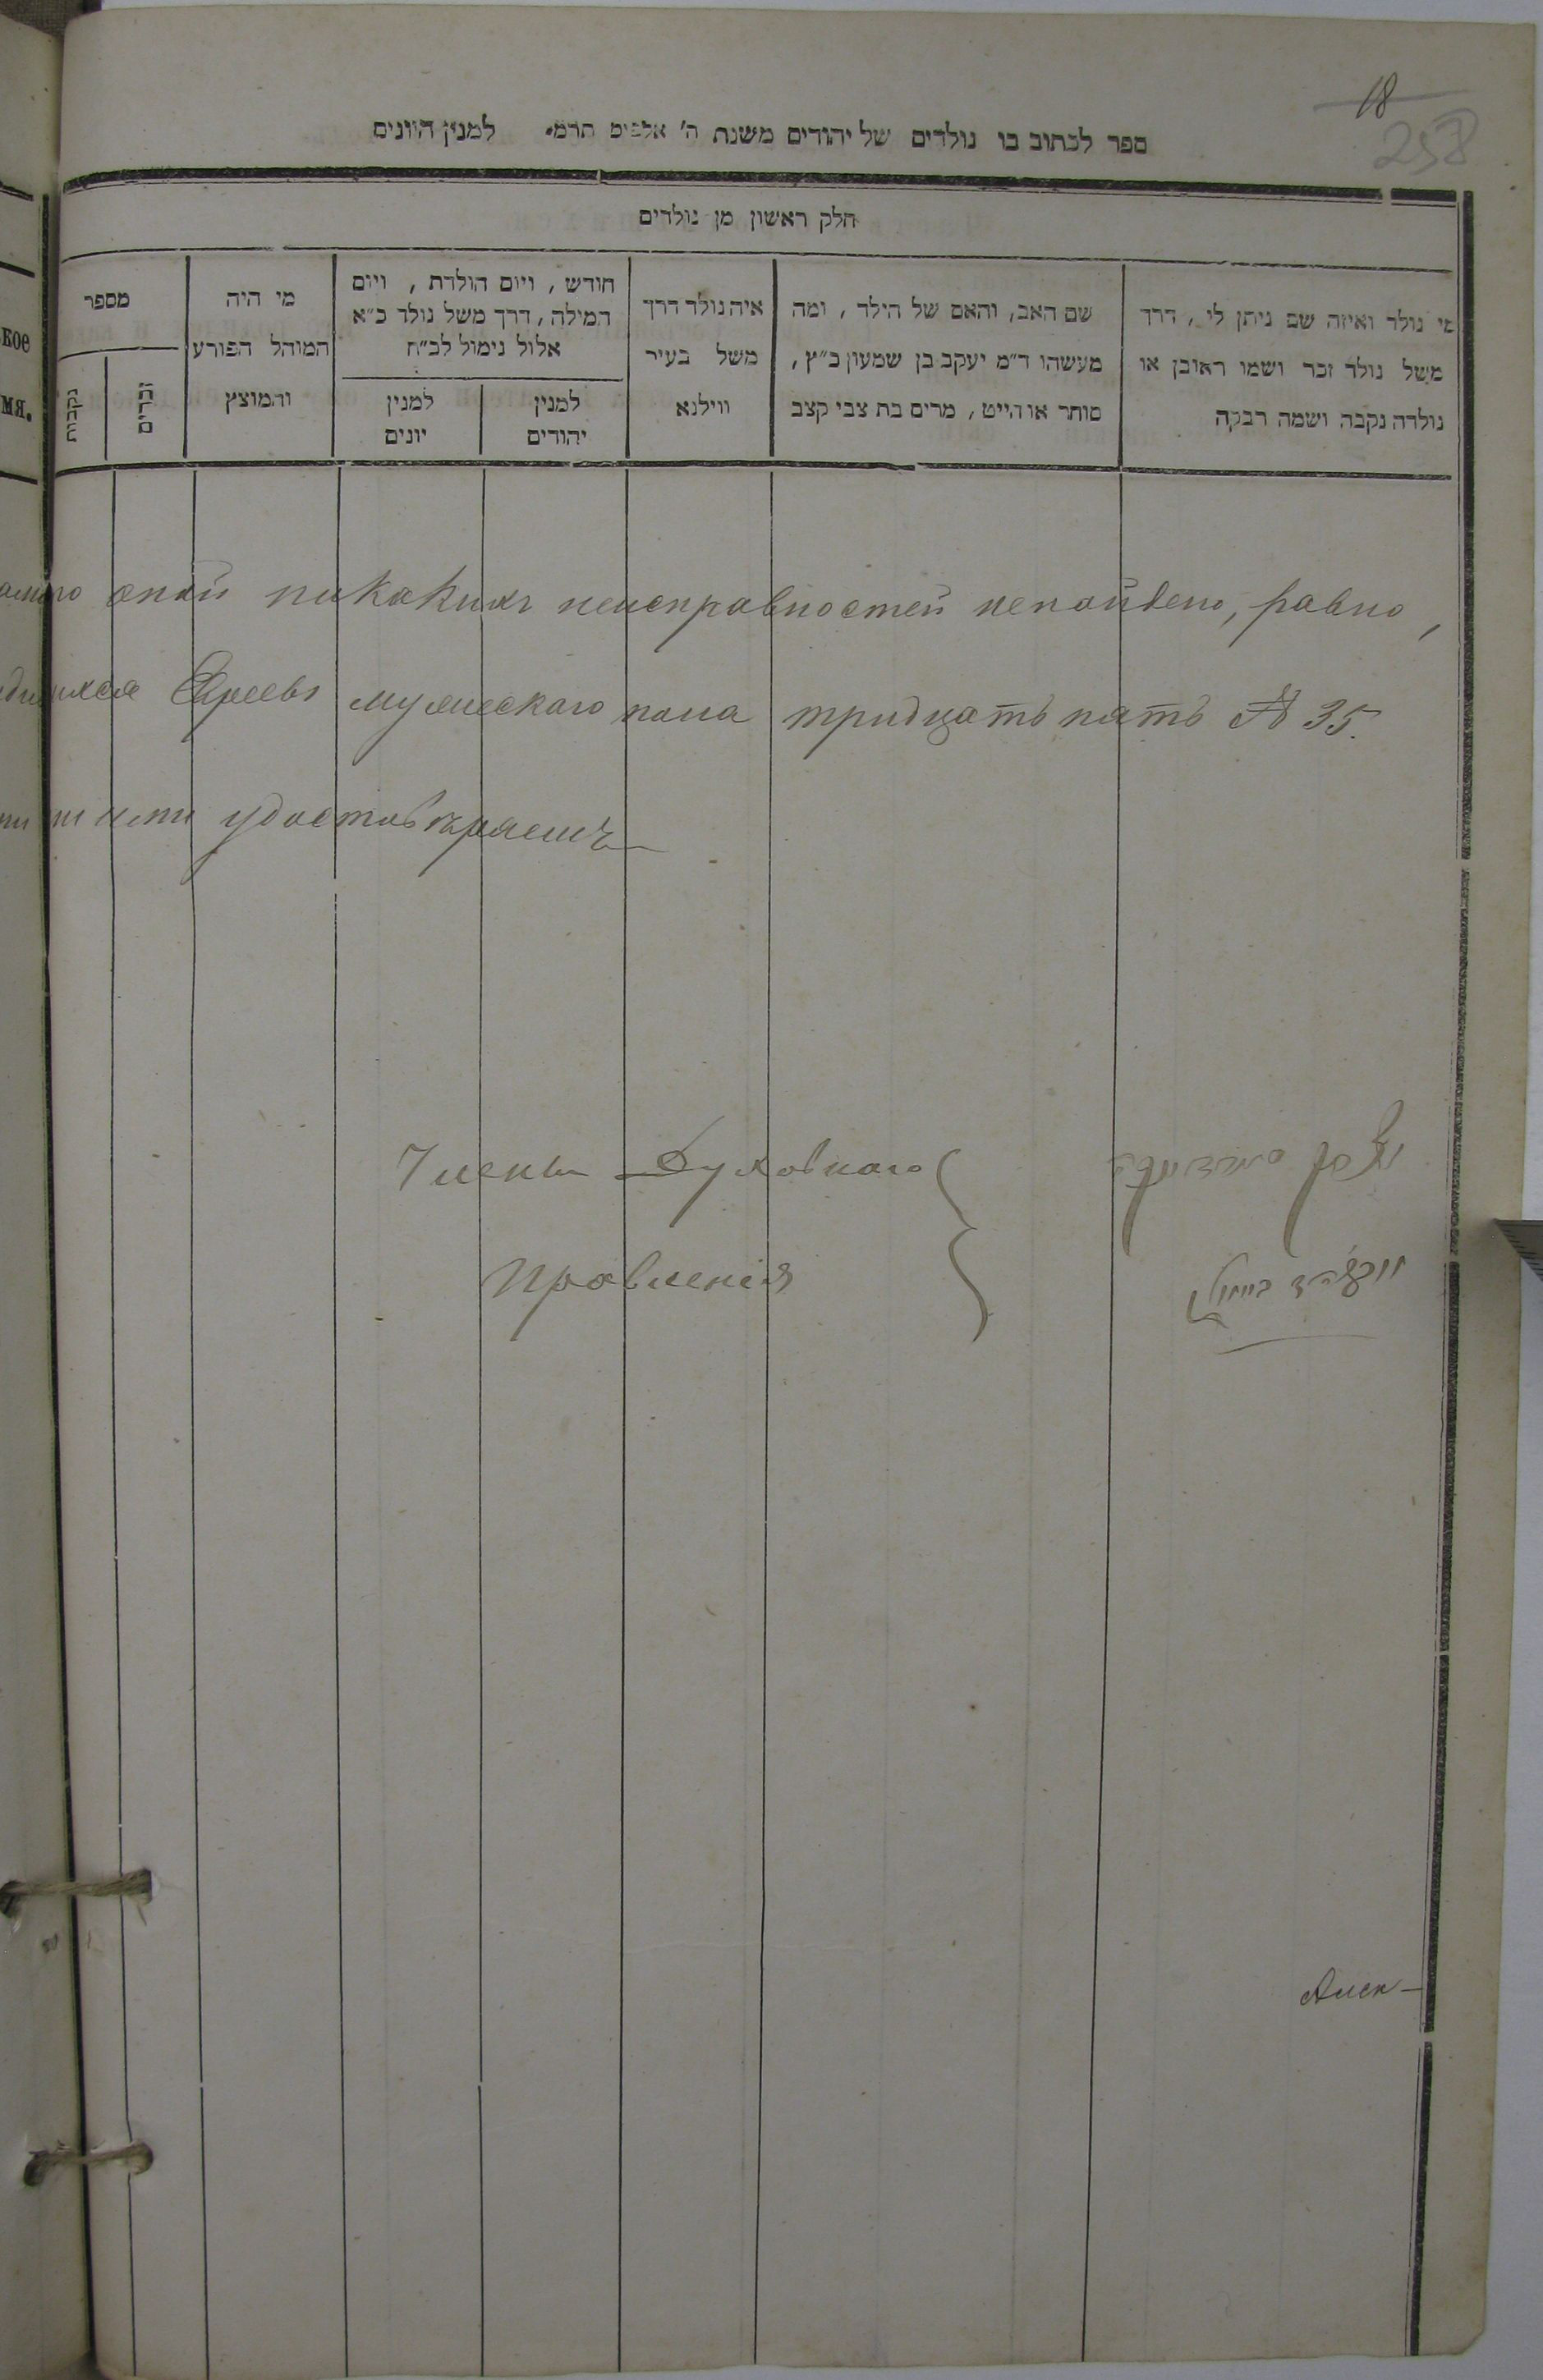 18
258
ספר לכתוב בו נולדים של יהודים משנת ה' אלפים תרמ' למנין היונים
חלק ראשון מן נולדים
מי נולד ואיזה שם ניתן לי, דרך
משל נולד זכר ושמו ראובן או
נולדה נקבה ושמה רבקה
שם האב, והאם של הילד, ומה
מעשהו ד"מ יעקב בן שמעון כ"ץ,
סוחר או הייט, מרים בת צבי קצב
איה נולד דרך
משל בעיר
ווילנא
חודש, ויום הולדת, ויום
המילה, דרך משל נולד כ"א
אלול נימול לכ"ח
למנין
יהודים
למנין
יונים
מי היה
המוהל הפורע
והמוצץ
מספר
זכרים
נקבות
кое
мя.
оной никакихъ неисправностей ненайдено, равно,
Евреевъ мужескаго пола тридцать пять № 35.
удостовѣряемъ
Члены Духовнаго
Правленія
Алек-